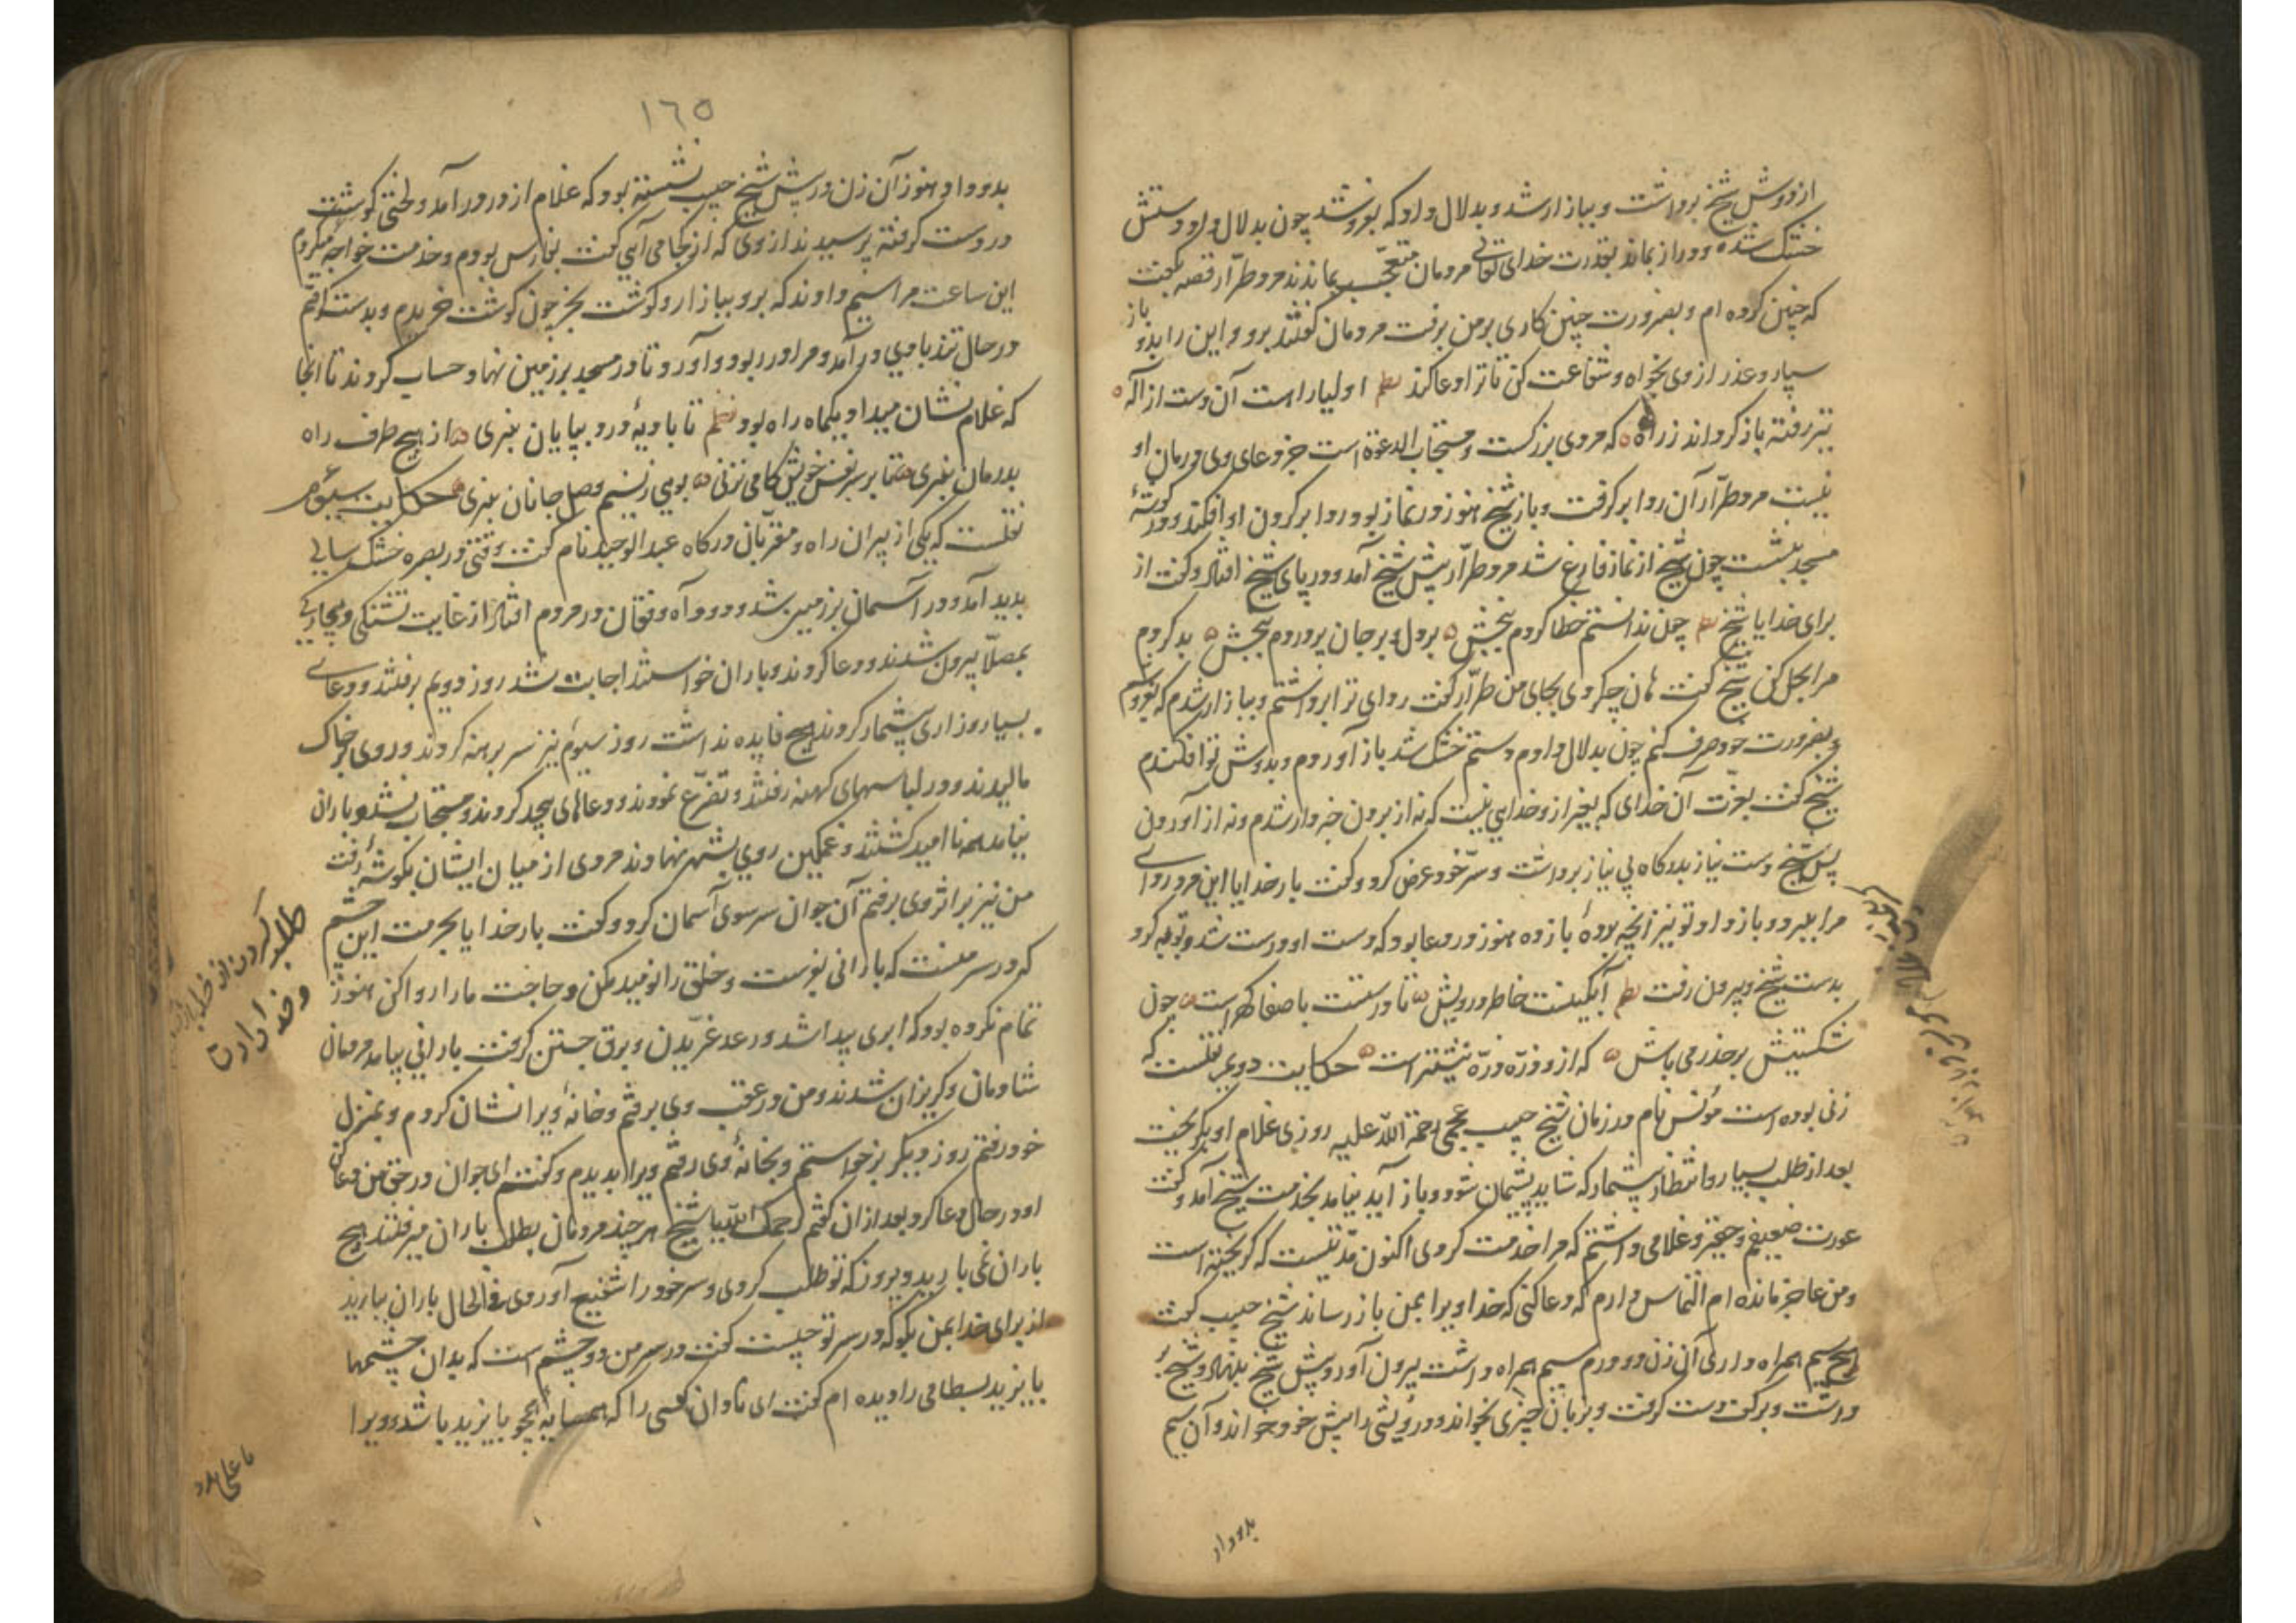 از دوش شیخ برداشت و ببازار شد و بدلال داد که بفروشد چون بدلال داد دستش
خشک شده و دراز بماند بقدرت خدای تعالی مردمان متعجب بماندند مرد طرّار قصه بگفت
که چنین کرده ام و بضرورت چنین کاری بر من برفت مردمان گفتند برو و این را بدو باز
سپار و عذر از وی بخواه و شفاعت کن تا ترا دعا کند نظم اولیا را هست آن دست از اله
تیر رفته باز گرداند ز راه که مردی بزرگست و مستجاب الدعوة است جز دعای وی درمان او
نیست مرد طرّار آن ردا برگرفت و باز شیخ هنوز در نماز بود ردا بر گردن او افکند و در گوشهٔ
مسجد بنشست چون شیخ از نماز فارغ شد مرد طرّار پیش شیخ آمد و در پای شیخ افتاد و گفت از
برای خدا یا شیخ نظم چون ندانستم خطا کردم ببخش بر دل و بر جان پر دردم ببخش بد کردم
مرا بحل کن شیخ گفت هان چه کردی بجای من طرّار گفت ردای ترا برداشتم و ببازار شدم که بفروشم
و بضرورت خود صرف کنم چون بدلال دادم دستم خشک شد باز آوردم و بدوش تو افکندم
شیخ گفت بعزّت آن خدای که بغیر از و خدایی نیست که نه از بردن خبر دار شدم و نه از آوردن
پس شیخ دست نیاز بدرگاه بی نیاز برداشت و سرّ خود عرض کرد و گفت بار خدایا این مرد ردای
مرا ببرد و باز داد تو نیز آنچه بردهٔ باز ده هنوز در دعا بود که دست او درست شد و توبه کرد
بدست شیخ و بیرون رفت نظم آبگینست خاطر درویش تا درستست با صفا گهر است چون
شکستیش بر حذر می باش که از و ذرّه ذرّه نیشتر است حکایت دویم نقلست که
زنی بوده است مونس نام در زمان شیخ حبیب عجمی رحمة الله علیه روزی غلام او بگریخت
بعد از طلب بسیار و انتظار بیشمار که شاید پشیمان شود و باز آید نیامد بخدمت شیخ آمد و گفت
عورت ضعیفم و حقیر و غلامی داشتم که مرا خدمت کردی اکنون مدّتیست که گریخته است
و من عاجز مانده ام التماس دارم که دعا کنی که خدا ویرا بمن باز رساند شیخ حبیب گفت
هیچ سیم همراه داری آن زن دو درم سیم همراه داشت بیرون آورد و پیش شیخ بنهاد و شیخ بر
داشت و بر کف دست گرفت و بزبان چیزی بخواند و درویشی را پیش خود خواند و آن سیم
بدو داد
١٦٥
بدو داد و هنوز آن زن در پیش شیخ حبیب نشسته بود که غلام از در در آمد و لختی گوشت
در دست گرفته پرسیدند از وی که از کجا می آیی گفت بفارس بودم و خدمت خواجه میکردم
این ساعت مرا سیم دادند که برو ببازار و گوشت بخر چون گوشت خریدم و بدست گرفتم
در حال تند بادی در آمد و مرا در ربود و آورد تا در مسجد بر زمین نهاد حساب کردند تا انجا
که غلام نشان میداد یکماه راه بود نظم تا بادیهٔ درد بپایان نبری از هیچ طرف راه
بدرمان نبری تا بر سر نفس خویش گامی نزنی بویی ز نسیم وصل جانان نبری حکایت سیوم
نقلست که یکی از پیران راه و مقرّبان درگاه عبد الوحید نام گفت وقتی در بصره خشک سالی
پدید آمد و در آسمان بر زمین شد و دود و آه و فغان در مردم افتاد از غایت تشنگی و بیچارگی
بمصلّا بیرون شدند و دعا کردند و باران خواستند اجابت نشد روز دویم برفتند و دعای
بسیار و زاری بیشمار کردند هیچ فایده نداشت روز سیوم نیز سر برهنه کردند و روی بر خاک
مالیدند و در لباسهای کهنه رفتند و تضرّع نمودند و دعاهای بیحد کردند و مستجاب نشد و باران
نیامد همه نا امید گشتند و غمگین روی بشهر نهادند مردی از میان ایشان بگوشهٔ رفت
من نیز بر اثر وی برفتم آن جوان سر سوی آسمان کرد و گفت بار خدایا بحرمت این چشم
که در سر منست که بارانی بفرست و خلق را نومید مکن و حاجت ما را روا کن هنوز
تمام نکرده بود که ابری پیدا شد و رعد غریدن و برق جستن گرفت بارانی بیامد مردمان
شادمان و گریزان شدند و من در عقب وی برفتم و خانهٔ ویرا نشان کردم و بمنزل
خود رفتم روز دیگر برخواستم و بخانهٔ وی رفتم ویرا بدیدم و گفتم ای جوان در حق من دعا کن
او در حال دعا کرد بعد از ان گفتم رحمک الله یا شیخ هر چند مردمان بطلب باران میرفتند هیچ
باران نمی بارید دیروز که تو طلب کردی و سر خود را شفیع آوردی فی الحال باران ببارید
از برای خدا بمن بگو که در سر تو چیست گفت در سر من دو چشم است که بدان چشمها
بایزید بسطامی را دیده ام گفت ای نادان کسی را که همسایهٔ همچو بایزید باشد و ویرا
طلب کردن از خدا باران